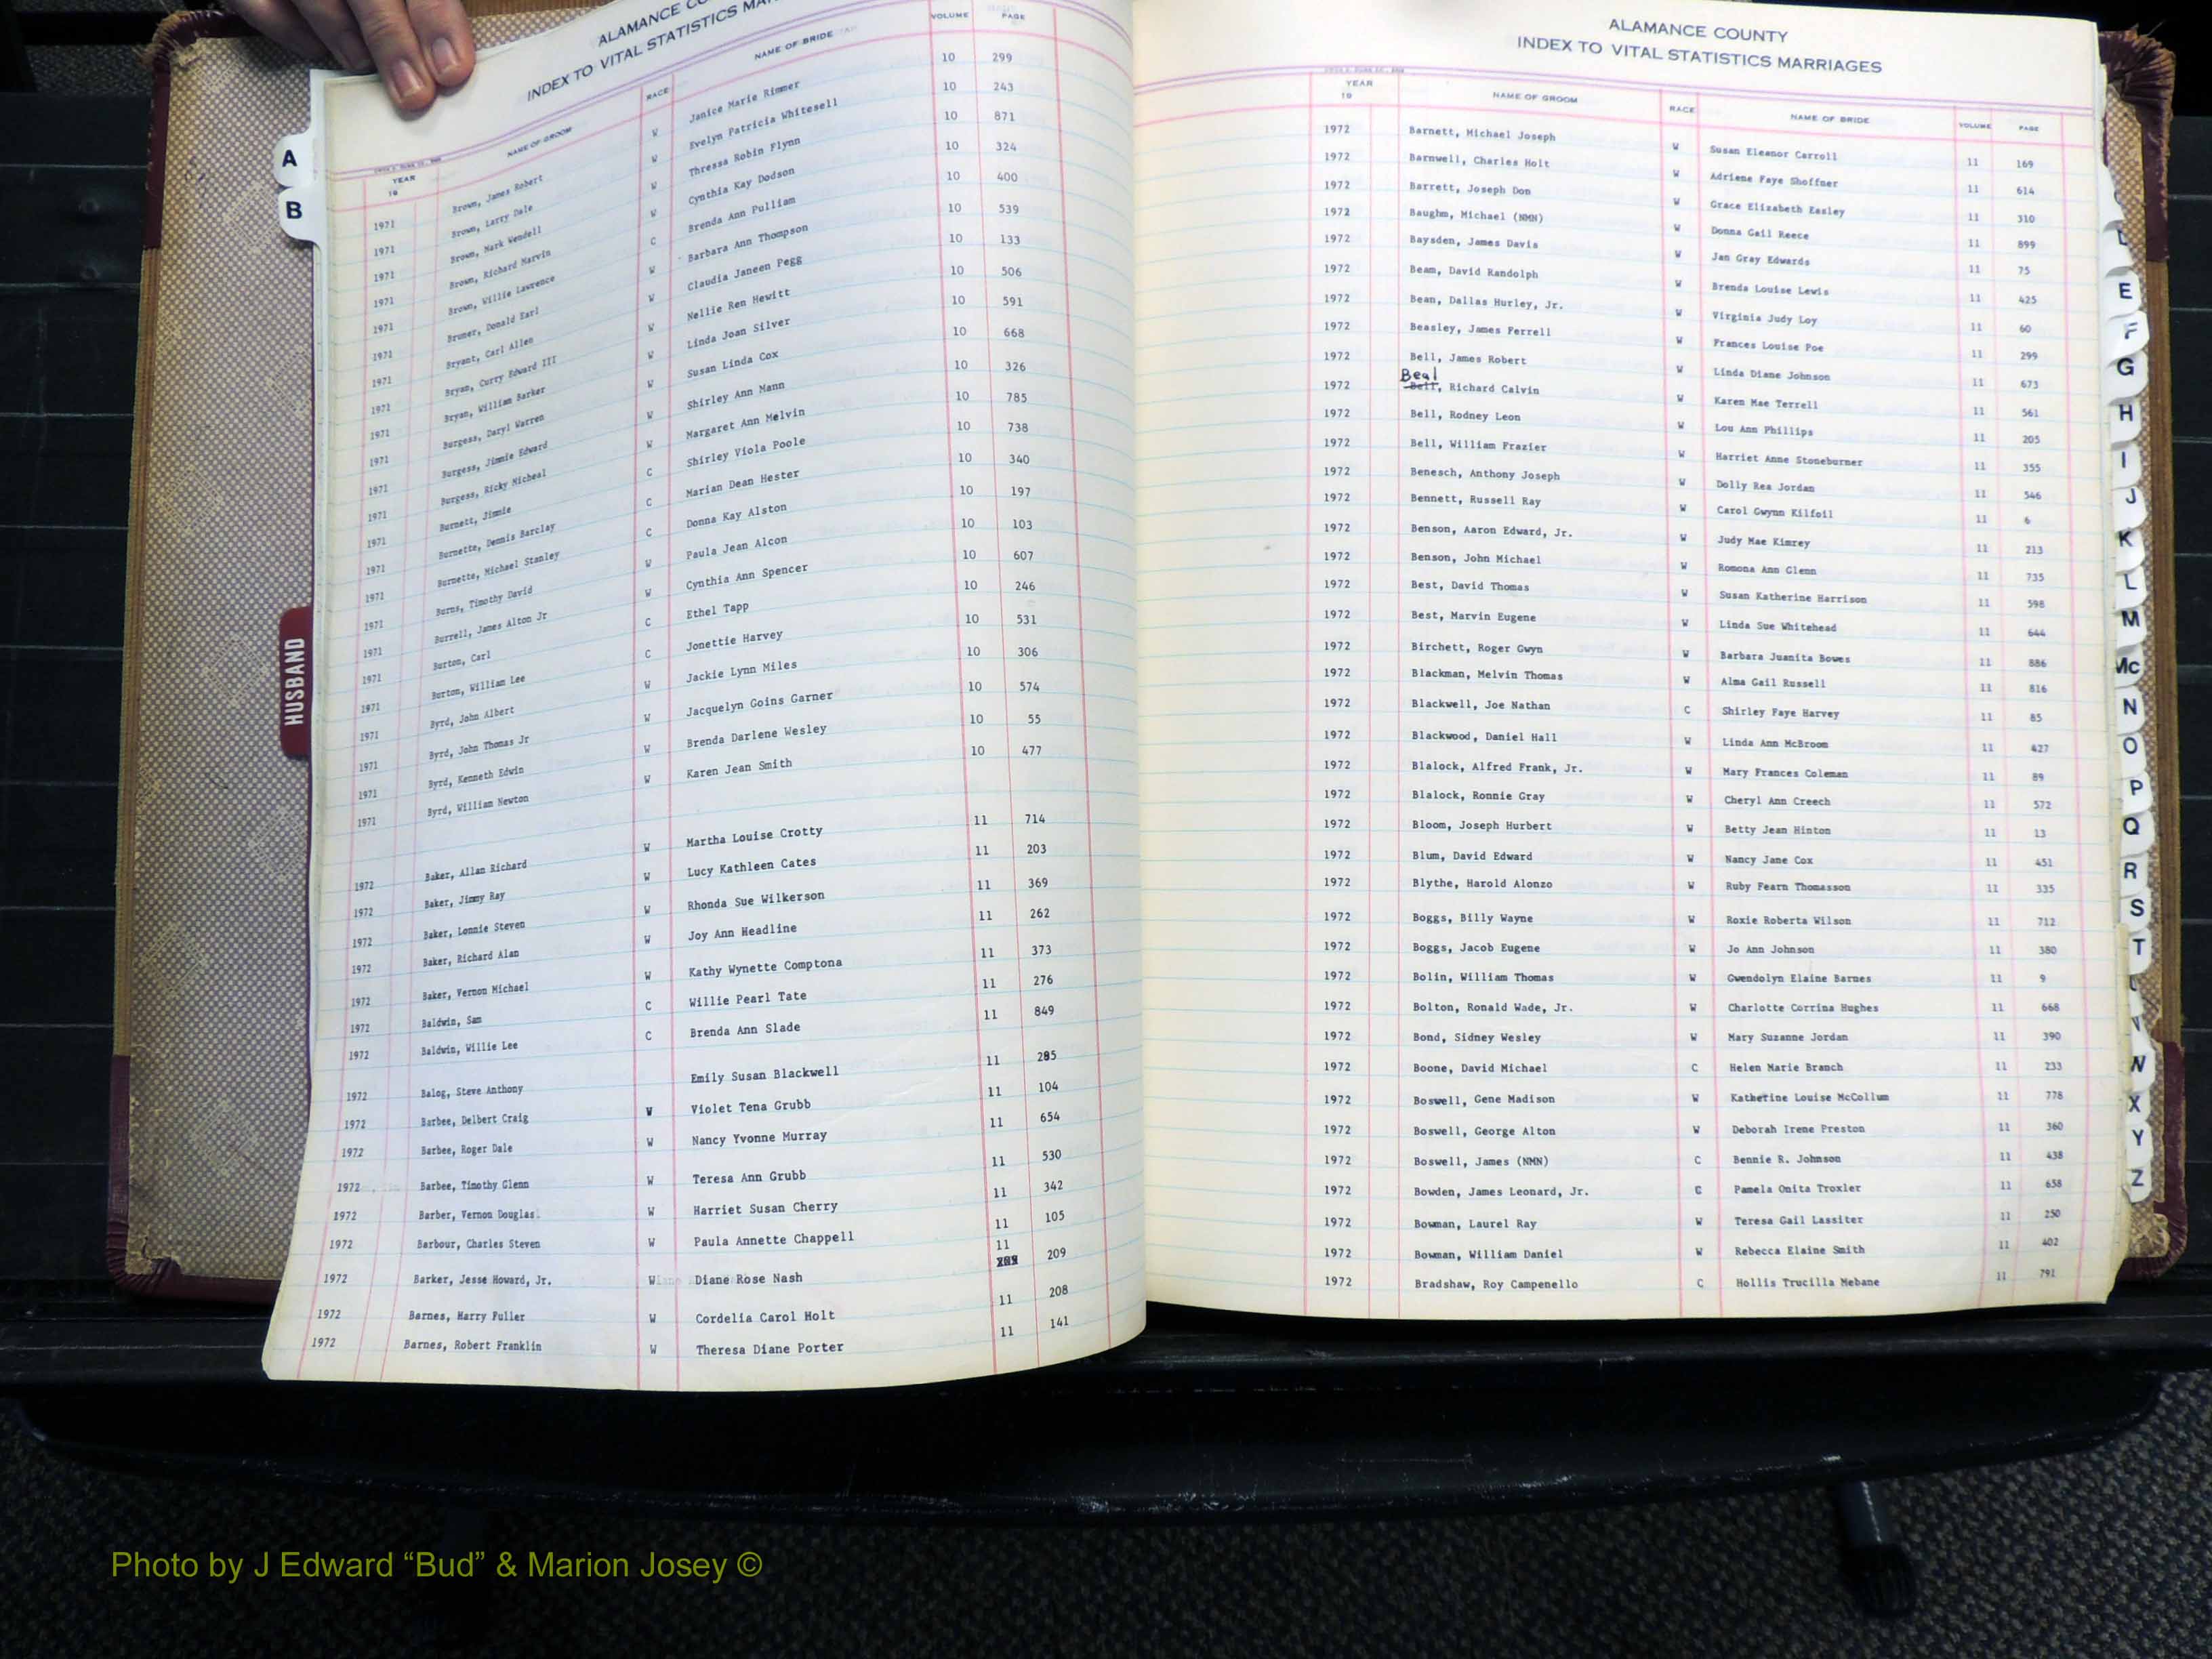 ALAMANCE
INDEX TO VITAL STATISTICS
YEAR 19 NAME OF GROOM RACE NAME OF BRIDE VOLUME PAGE
1971 Brown, James Robert W Janice Marie Rimmer 10 299
1971 Brown, Larry Dale W Evelyn Patricia Whitesell 10 243
1971 Brown, Mark Wendell W Thressa Robin Flynn 10 871
1971 Brown, Richard Marvin W Cynthia Kay Dodson 10 324
1971 Brown, Willie Lawrence C Brenda Ann Pulliam 10 400
1971 Bruner, Donald Earl W Barbara Ann Thompson 10 539
1971 Bryant, Carl Allen W Claudia Janeen Pegg 10 133
1971 Bryan, Curry Edward III W Nellie Ren Hewitt 10 506
1971 Bryan, William Barker W Linda Joan Silver 10 591
1971 Burgess, Daryl Warren W Susan Linda Cox 10 668
1971 Burgess, Jimmie Edward W Shirley Ann Mann 10 326
1971 Burgess, Ricky Micheal W Margaret Ann Melvin 10 785
1971 Burnett, Jimmie C Shirley Viola Poole 10 738
1971 Burnette, Dennis Barclay C Marian Dean Hester 10 340
1971 Burnette, Michael Stanley C Donna Kay Alston 10 197
1971 Burns, Timothy David W Paula Jean Alcon 10 103
1971 Burrell, James Alton Jr W Cynthia Ann Spencer 10 607
1971 Burton, Carl C Ethel Tapp 10 246
1971 Burton, William Lee C Jonettie Harvey 10 531
1971 Byrd, John Albert W Jackie Lynn Miles 10 306
1971 Byrd, John Thomas Jr W Jacquelyn Goins Garner 10 574
1971 Byrd, Kenneth Edwin W Brenda Darlene Wesley 10 55
1971 Byrd, William Newton W Karen Jean Smith 10 477
1972 Baker, Allan Richard W Martha Louise Crotty 11 714
1972 Baker, Jimmy Ray W Lucy Kathleen Cates 11 203
1972 Baker, Lonnie Steven W Rhonda Sue Wilkerson 11 369
1972 Baker, Richard Alan W Joy Ann Headline 11 262
1972 Baker, Vernon Michael W Kathy Wynette Comptona 11 373
1972 Baldwin, Sam C Willie Pearl Tate 11 276
1972 Baldwin, Willie Lee C Brenda Ann Slade 11 849
1972 Balog, Steve Anthony Emily Susan Blackwell 11 285
1972 Barbee, Delbert Craig W Violet Tena Grubb 11 104
1972 Barbee, Roger Dale W Nancy Yvonne Murray 11 654
1972 Barbee, Timothy Glenn W Teresa Ann Grubb 11 530
1972 Barber, Vernon Douglas W Harriet Susan Cherry 11 342
1972 Barbour, Charles Steven W Paula Annette Chappell 11 105
1972 Barker, Jesse Howard, Jr. W Diane Rose Nash 11 209
1972 Barnes, Harry Fuller W Cordelia Carol Holt 11 208
1972 Barnes, Robert Franklin W Theresa Diane Porter 11 141
A
B
HUSBAND
ALAMANCE COUNTY
INDEX TO VITAL STATISTICS MARRIAGES
YEAR 19 NAME OF GROOM RACE NAME OF BRIDE VOLUME PAGE
1972 Barnett, Michael Joseph W Susan Eleanor Carroll 11 169
1972 Barnwell, Charles Holt W Adriene Faye Shoffner 11 614
1972 Barrett, Joseph Don W Grace Elizabeth Easley 11 310
1972 Baughm, Michael (NMN) W Donna Gail Reece 11 899
1972 Baysden, James Davis W Jan Gray Edwards 11 75
1972 Beam, David Randolph W Brenda Louise Lewis 11 425
1972 Bean, Dallas Hurley, Jr. W Virginia Judy Loy 11 60
1972 Beasley, James Ferrell W Frances Louise Poe 11 299
1972 Bell, James Robert W Linda Diane Johnson 11 673
Beal
1972 Bell, Richard Calvin W Karen Mae Terrell 11 561
1972 Bell, Rodney Leon W Lou Ann Phillips 11 205
1972 Bell, William Frazier W Harriet Anne Stoneburner 11 355
1972 Benesch, Anthony Joseph W Dolly Rea Jordan 11 546
1972 Bennett, Russell Ray W Carol Gwynn Kilfoil 11 6
1972 Benson, Aaron Edward, Jr. W Judy Mae Kimrey 11 213
1972 Benson, John Michael W Romona Ann Glenn 11 735
1972 Best, David Thomas W Susan Katherine Harrison 11 598
1972 Best, Marvin Eugene W Linda Sue Whitehead 11 644
1972 Birchett, Roger Gwyn W Barbara Juanita Bowes 11 886
1972 Blackman, Melvin Thomas W Alma Gail Russell 11 816
1972 Blackwell, Joe Nathan C Shirley Faye Harvey 11 85
1972 Blackwood, Daniel Hall W Linda Ann McBroom 11 427
1972 Blalock, Alfred Frank, Jr. W Mary Frances Coleman 11 89
1972 Blalock, Ronnie Gray W Cheryl Ann Creech 11 572
1972 Bloom, Joseph Hurbert W Betty Jean Hinton 11 13
1972 Blum, David Edward W Nancy Jane Cox 11 451
1972 Blythe, Harold Alonzo W Ruby Fearn Thomasson 11 335
1972 Boggs, Billy Wayne W Roxie Roberta Wilson 11 712
1972 Boggs, Jacob Eugene W Jo Ann Johnson 11 380
1972 Bolin, William Thomas W Gwendolyn Elaine Barnes 11 9
1972 Bolton, Ronald Wade, Jr. W Charlotte Corrina Hughes 11 668
1972 Bond, Sidney Wesley W Mary Suzanne Jordan 11 390
1972 Boone, David Michael C Helen Marie Branch 11 233
1972 Boswell, Gene Madison W Katherine Louise McCollum 11 778
1972 Boswell, George Alton W Deborah Irene Preston 11 360
1972 Boswell, James (NMN) C Bennie R. Johnson 11 438
1972 Bowden, James Leonard, Jr. C Pamela Onita Troxler 11 658
1972 Bowman, Laurel Ray W Teresa Gail Lassiter 11 250
1972 Bowman, William Daniel W Rebecca Elaine Smith 11 402
1972 Bradshaw, Roy Campenello C Hollis Trucilla Mebane 11 791
E
F
G
H
I
J
K
L
M
Mc
N
O
P
Q
R
S
T
V
W
X
Y
Z
Photo by J Edward “Bud” & Marion Josey ©